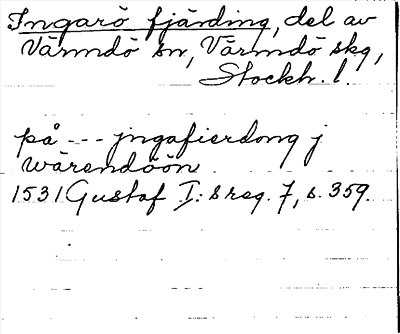 Ingarö fjärding, del av
Värmdö sn, Värmdö skg,
Stockh. l.
på --- jngafierdong j
wärendöön
1531 Gustaf I:s reg. 7, s. 359.